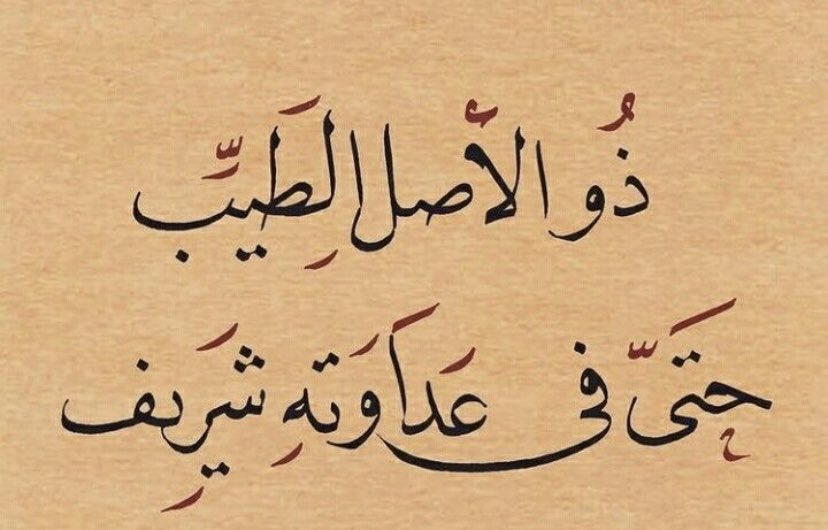 ذُو الأصل الطَيِّب
حَتَّى فى عَدَاوَتِهِ شَرِيف